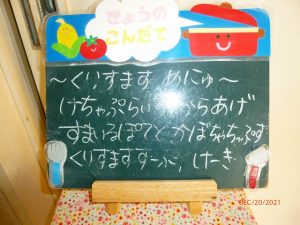 きょうの
こんだて
～くりすます めにゅ～
けちゃっぷらいす からあげ
すまいるぽてと かぼちゃちーず
くりすますすーぷ、けーき
DEC/20/2021